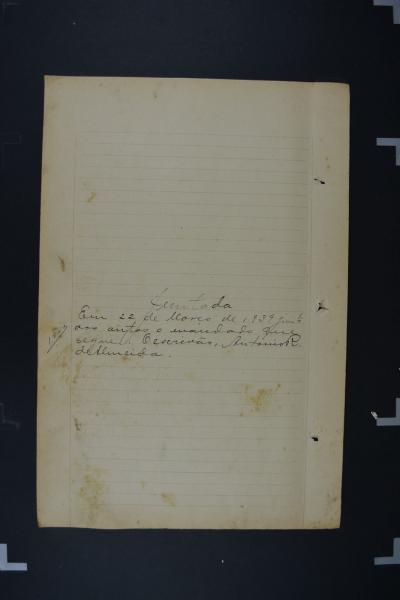 Juntada
Em 22 de Março de 1939 junto
aos autos o mandado que
segue. O Escrivão, Antonio R.
de Almeida.